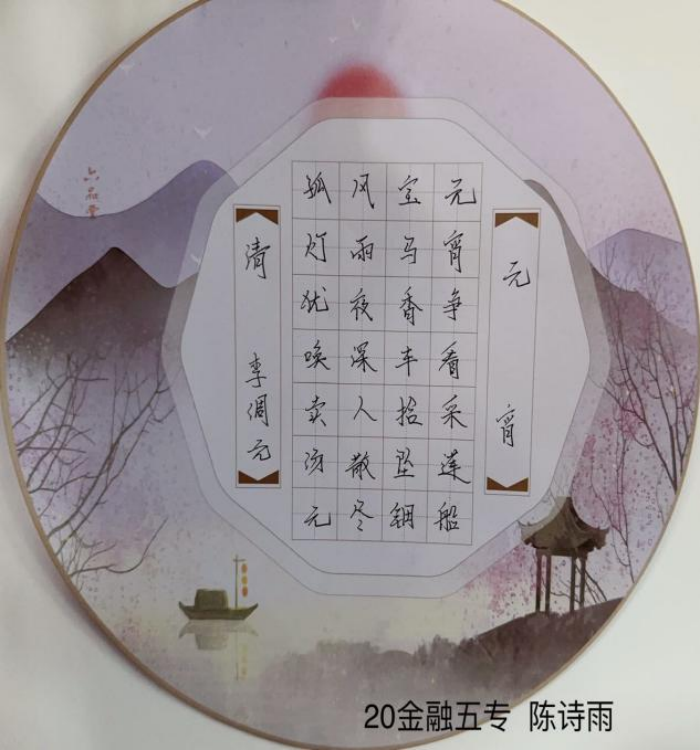 元宵
元宵争看采莲船
宝马香车拾坠钿
风雨夜深人散尽
孤灯犹唤卖汤元
清 李调元
20金融五专 陈诗雨